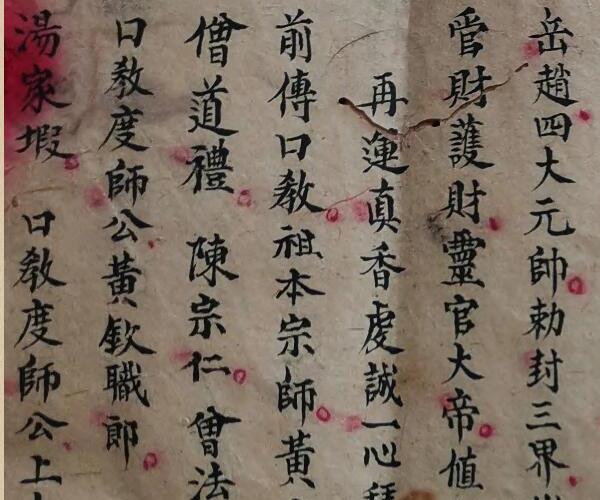 岳趙四大元帥勅封三界
官財護財靈官大帝值
再運真香虔誠一心拜
前傳口教祖本宗師黃
僧道禮 陳宗仁 曾法
口教度師公黃欽職郎
湯家塅 口教度師公上